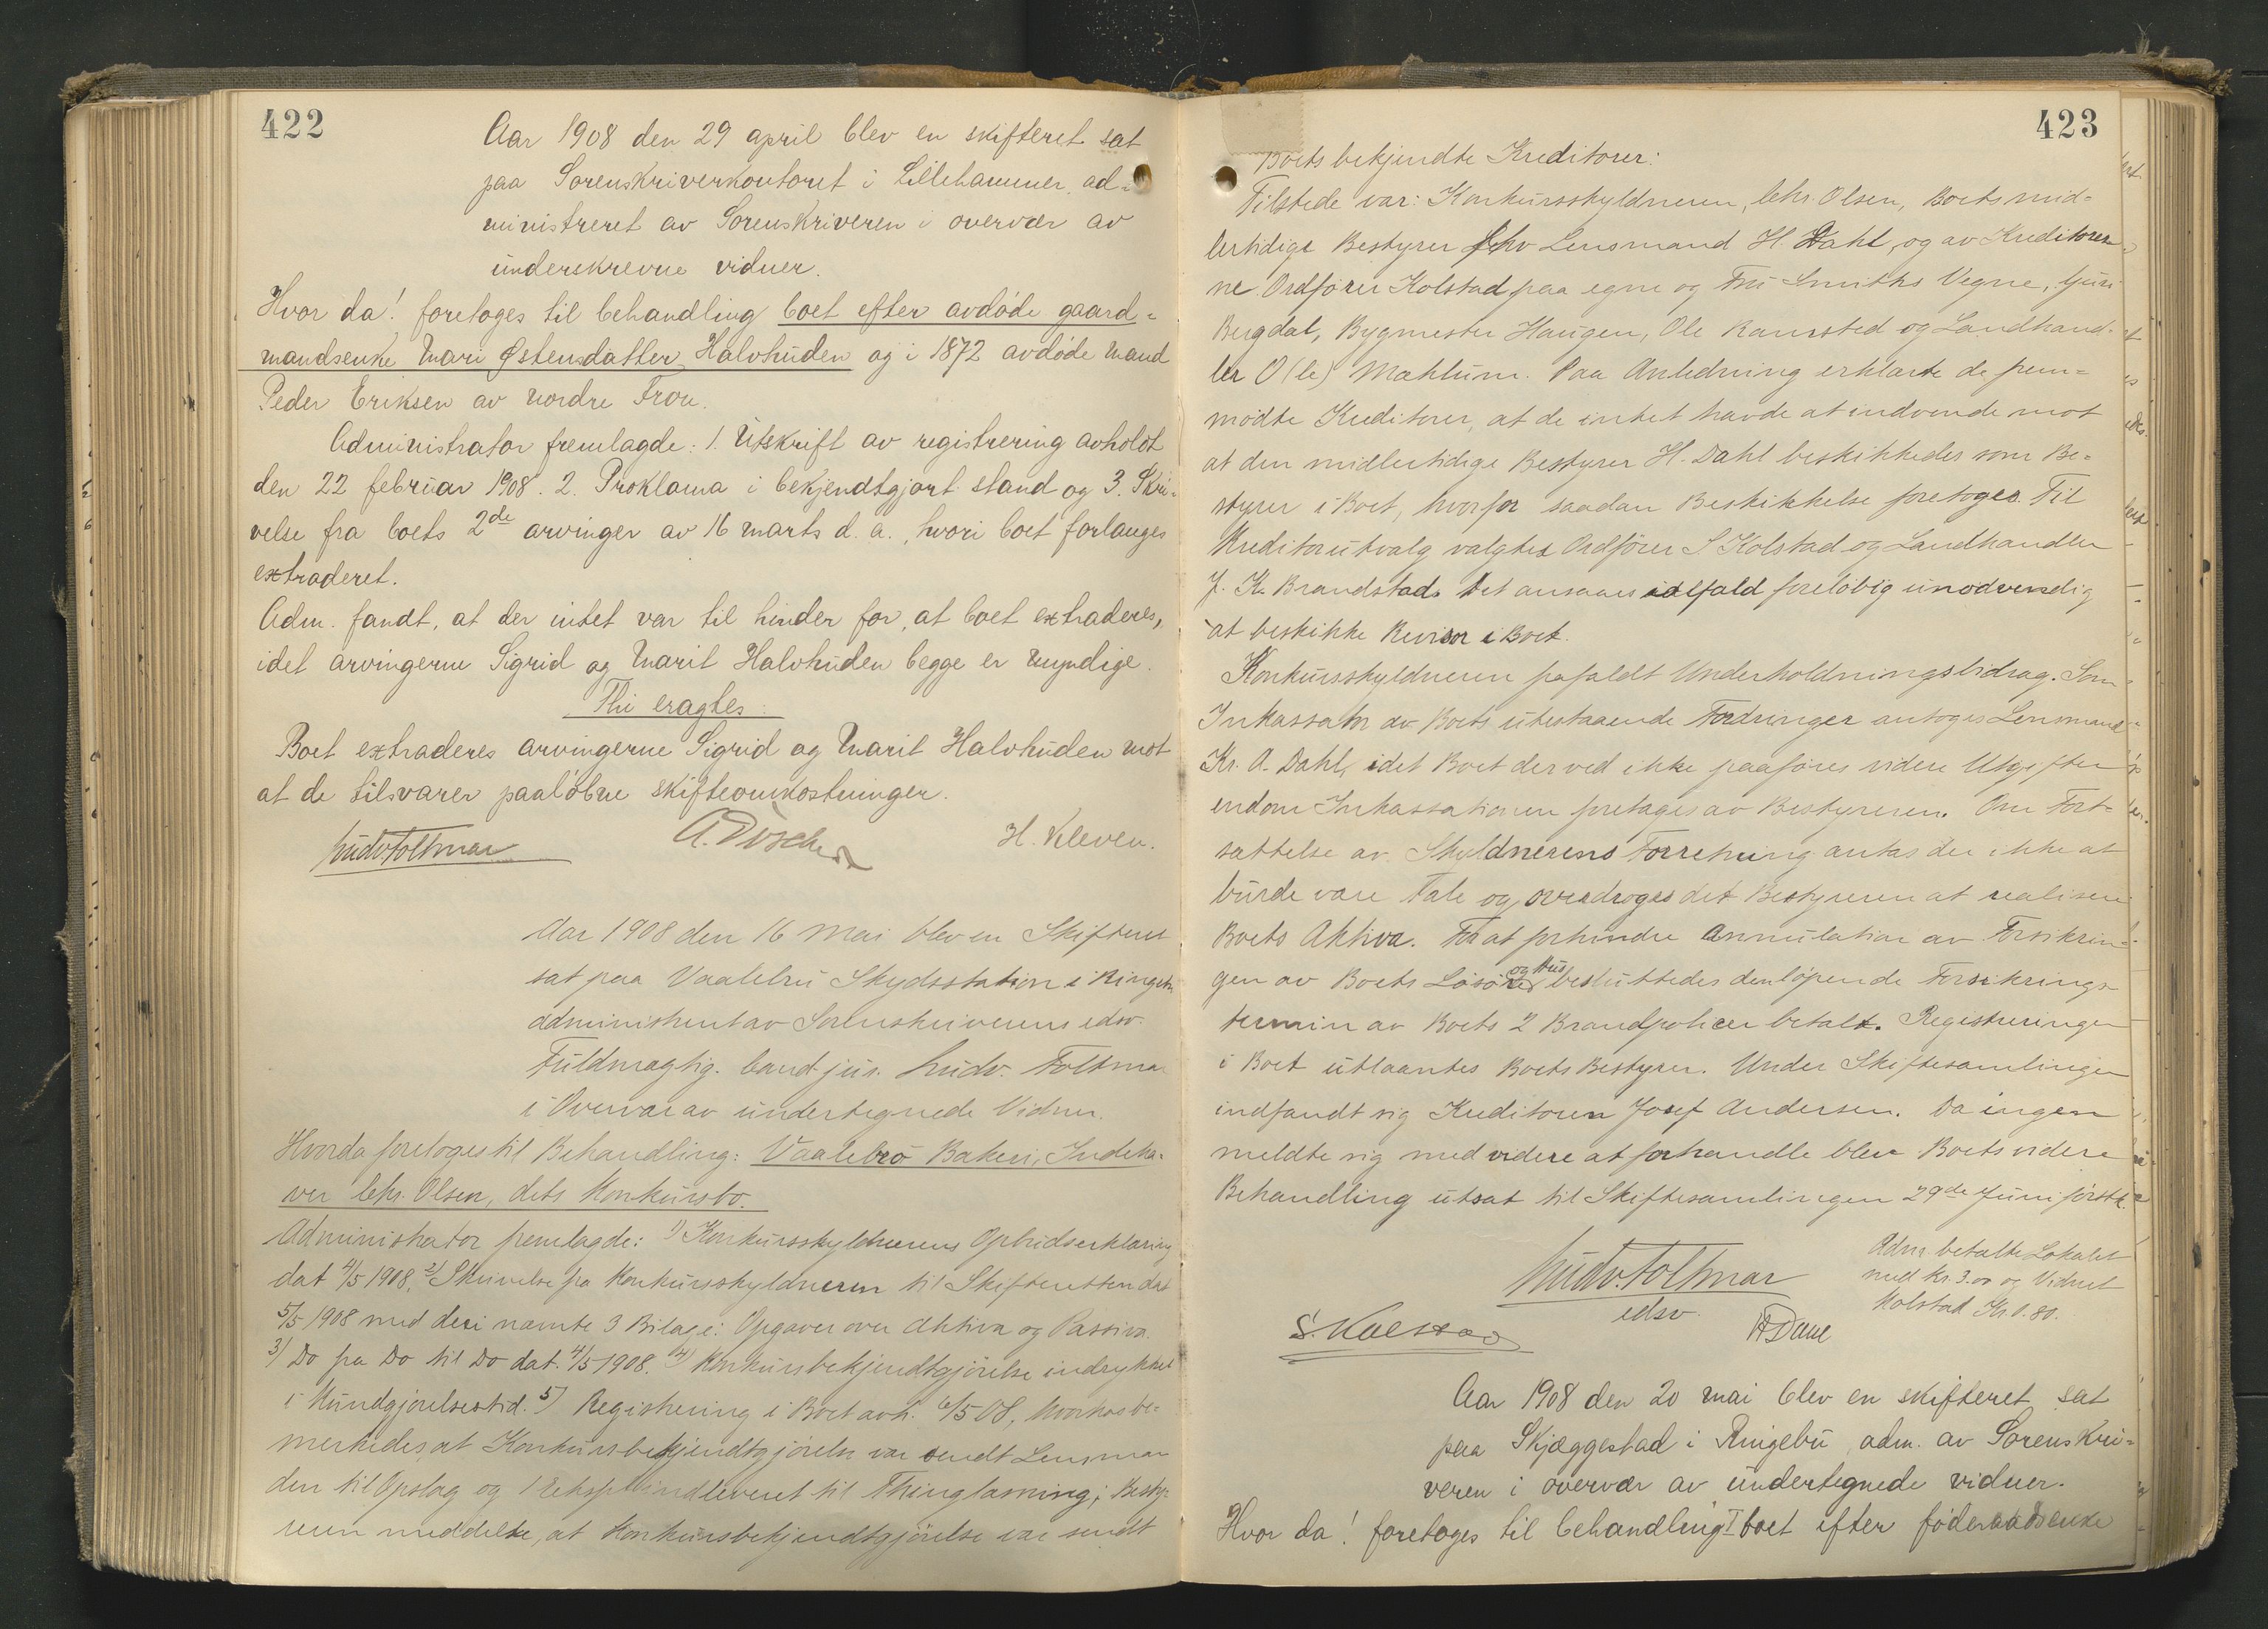 422
Aar 1908 den 29 april blev en skifteret sat
paa Sorenskriverkontoret i Lillehammer, ad-
ministreret av Sorenskriveren i overvær av
underskrevne vidner.
Hvor da! foretoges til behandling boet efter avdøde gaard-
mandsenke Mari Østensdatter Halvhuden og i 1872 avdøde mand
Peder Eriksen av nordre Fron.
Administrator fremlagde: 1. Utskrift av registrering avholdt
den 22 februar 1908. 2. Proklama i bekjendtgjort stand og 3. Skri-
velse fra boets 2de arvinger av 16 marts d. a., hvori boet forlanges
extraderet.
Adm. fandt, at der intet var til hinder for, at boet extraderes,
idet arvingerne Sigrid og Marit Halvhuden begge er myndige.
Thi eragtes:
Boet extraderes arvingerne Sigrid og Marit Halvhuden mot
at de tilsvarer paaløbne skifteomkostninger.
Ludv. Foltmar H. Kleven.
Aar 1908 den 16 Mai blev en Skifteret
sat paa Vaalebru Skydsstation i Ringebu
administreret av Sorenskriverens edsv.
Fuldmægtig cand jur. Ludv. Foltmar
i Overvær av undertegnede Vidner.
Hvor da foretoges til Behandling: Vaalebro Bakeri, Indeha-
ver Chr. Olsen, dets Konkursbo.
Administrator fremlagde: 1) Konkursskyldnerens Opbudserklæring
dat 4/5 1908, 2) Skrivelse fra Konkursskyldneren til Skifteretten dat
5/5 1908 med deri nævnte 3 Bilage: Opgaver over Aktiva og Passiva.
3) Do fra Do til Do dat. 4/5 1908. 4) Konkursbekjendtgjørelse indrykket
i Kundgjørelsestid. 5) Registrering i Boet avh. 6/5 08, hvorhos be-
merkedes, at Konkursbekjendtgjørelse var sendt Lensman
den til Opslag og 1 Ekspl. indleveret til Thinglæsning; Besty-
reren meddelte, at Konkursbekjendtgjørelse var sendt
423
Boets bekjendte Kreditorer:
Tilstede var: Konkursskyldneren, Chr. Olsen, Boets mid-
lertidige Bestyrer Lensmand H. Dahl, og av Kreditorer-
ne Ordfører Kolstad paa egne og Fru Smiths Vegne,
Bergdal, Bygmester Haugen, Ole Ramsted og Landhand-
ler O(le) Mæhlum. Paa Anledning erklærte de frem-
mødte Kreditorer, at de intet havde at indvende mot
at den midlertidige Bestyrer H. Dahl beskikkedes som Be-
styrer i Boet, hvorfor saadan Beskikkelse foretoges. Til
Kreditorutvalg valgtes Ordfører S Kolstad og Landhandler
J. K. Brandstad. Det ansaaes ialfald foreløbig unødvendig
at beskikke Revisor i Boet.
Konkursskyldneren frafaldt Underholdningsbidrag. Som
Inkassator av Boets utestaaende Fordringer antoges Lensmand
Kr. A. Dahl, idet Boet derved ikke paaføres videre Utgifter
endom Inkassationen foretages av Bestyreren. Om Fort-
sættelse av Skyldnerens Forretning antas der ikke at
burde være Tale og overdroges det Bestyreren at realisere
Boets Aktiva. For at forhindre Annulation av Forsikrin-
gen av Boets Løsøre og Hus besluttedes den løpende Forsikrings-
termin av Boets 2 Brandpolicer betalt. Registreringen
i Boet utlaantes Boets Bestyrer. Under Skiftesamlingen
indfandt sig Kreditoren Josef Andersen. Da ingen
meldte sig med videre at forhandle blev Boets videre
Behandling utsat til Skiftesamlingen 29de Juni førstk.
Ludv. Foltmar
edsv.
Adm. betalte Lokalet
med Kr. 3.00 og Vidnet
Kolstad Kr. 0.80.
S. Kolstad
H Dahl
Aar 1908 den 20 mai blev en skifteret sat
paa Skjæggestad i Ringebu, adm. av Sorenskri-
veren i overvær av undertegnede vidner.
Hvor da! foretoges til behandling I boet efter føderaadsenke